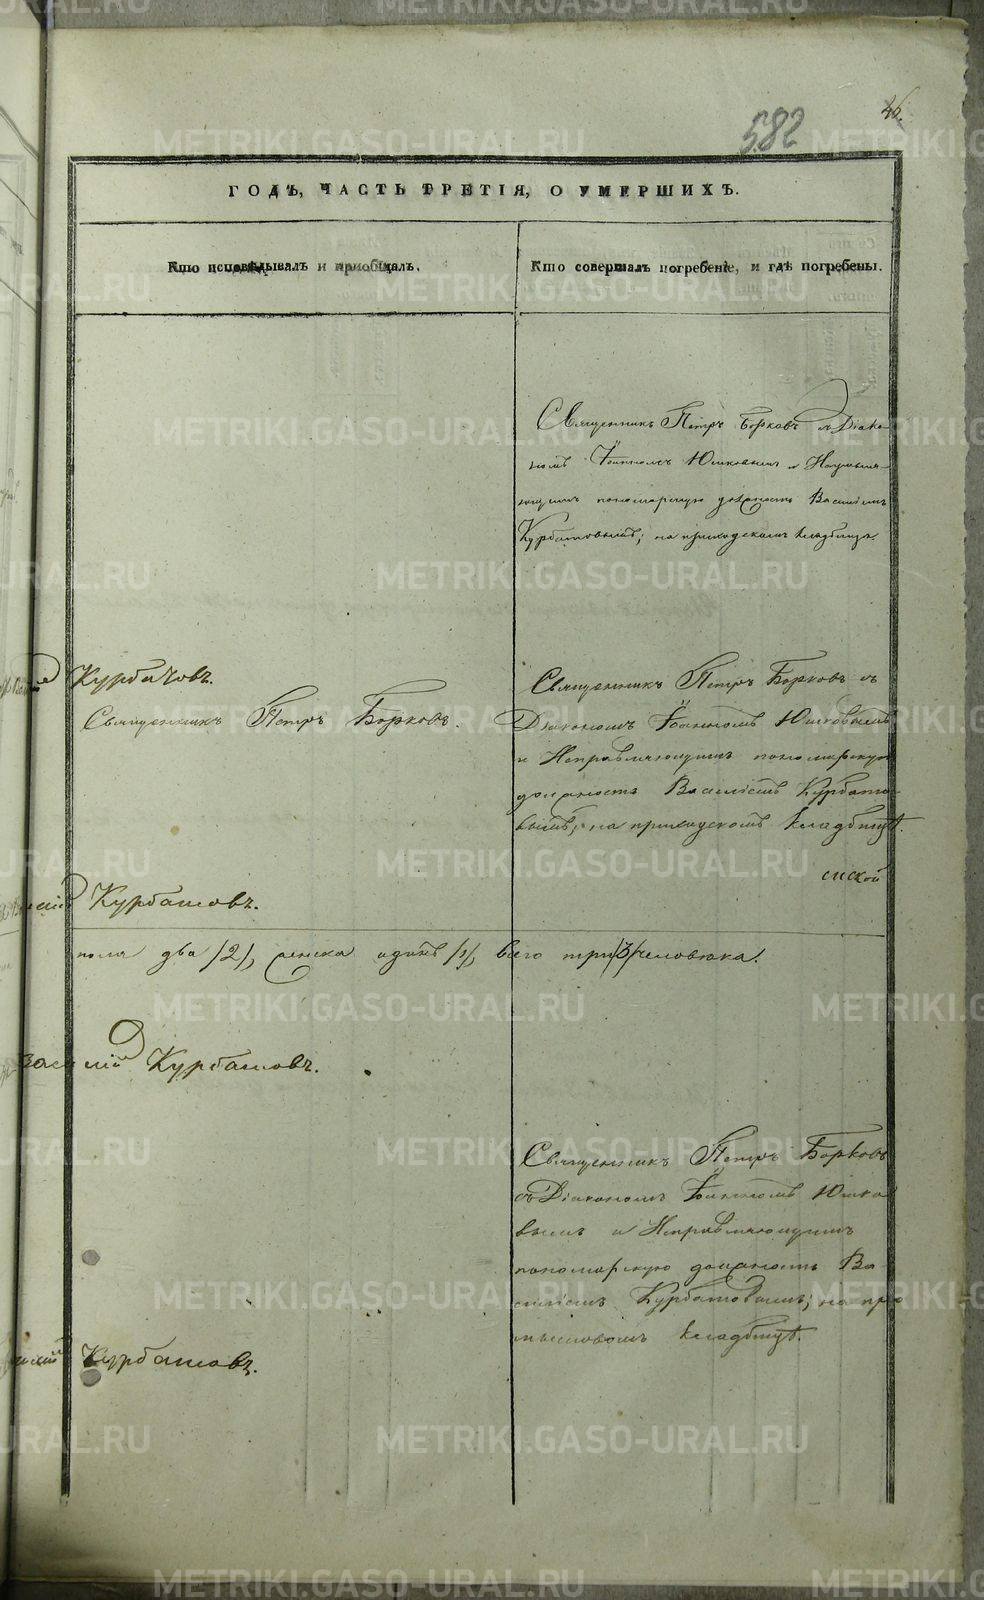 582
46.
ГОДѢ, ЧАСТЬ ТРЕТІЯ, О УМЕРШИХЪ.
Кто исповѣдывалъ и приобщалъ.
Кто совершалъ погребеніе, и гдѣ погребены.
Священникъ Петръ Борковъ съ Діако-
номъ Іоанномъ Юшковымъ и Исправля-
ющимъ пономарскую должность Василіемъ
Курбатовымъ; на приходскомъ кладбищѣ.
Курбатовъ.
Священникъ Петръ Борковъ.
Священникъ Петръ Борковъ съ
Діакономъ Іоанномъ Юшковымъ
и Исправляющимъ пономарскую
должность Василіемъ Курбато-
вымъ, на приходскомъ кладбищѣ.
Курбатовъ.
мской
пола два /2/, женска одинъ /1/, всего три /3/ человѣка.
Василій Курбатовъ.
Священникъ Петръ Борковъ
съ Діакономъ Іоанномъ Юшко
вымъ и Исправляющимъ
пономарскую должность Ва-
силіемъ Курбатовымъ; на про
мысловомъ кладбищѣ.
Курбатовъ.
METRIKI.GASO-URAL.RU